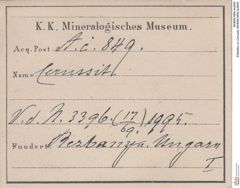 K. K. Mineralogisches Museum.
Acq. Post A. c. 849.
Name Cerussit
V. d. N. 3396. (17/69.) 1995.
Fundort Rezbanya. Ungarn
I